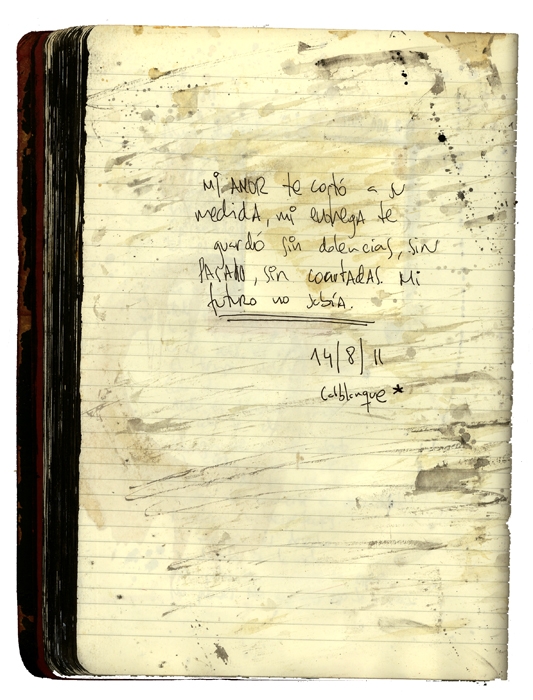 Mi AMOR te cortó a su
medidA, mi entregA te
guardó sin dolencias, sin
PASAdo, sin coartadAs. Mi
futuro no sabíA.
14/8/11
Calblanque *